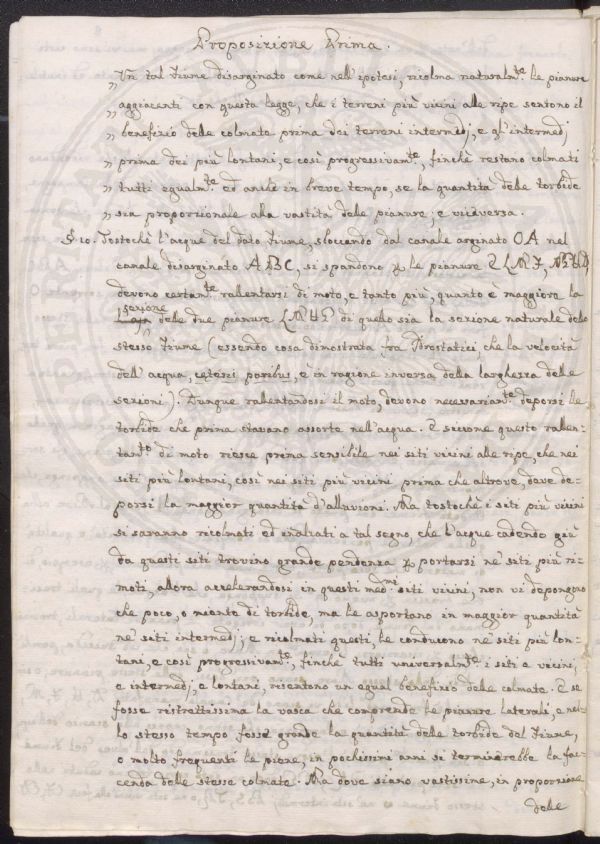 Proposizione Prima.
„ Un tal Fiume disarginato come nell'ipotesi, ricolma naturalm.te le pianure
„ aggiacenti con questa legge, che i terreni più vicini alle ripe sentono il
„ benefizio delle colmate prima dei terreni intermedj, e gl'intermedj
„ prima dei più lontani, e così progressivam.te, finchè restano colmati
„ tutti egualm.te ed anche in breve tempo, se la quantità delle torbide
„ sia proporzionale alla vastità delle pianure, e viceversa.
§ 10. Tostochè l'acque del dato Fiume, sboccando dal canale arginato OA nel
canale disarginato ABC, si spandono p le pianure
devono certam.te rallentarsi di moto, e tanto più, quanto è maggiore la
sezione
delle due pianure di quello sia la sezione naturale dello
stesso Fiume (essendo cosa dimostrata fra Idrostatici, che la velocità
dell'acqua, cęteris paribus, e in ragione inversa della larghezza delle
sezioni). Dunque rallentandosi il moto, devono necessariam.te deporsi le
torbide che prima stavano assorte nell'acqua. E siccome questo rallen-
tam.to di moto riesce prima sensibile nei siti vicini alle ripe, che nei
siti più lontani, così nei siti più vicini prima che altrove, deve de-
porsi la maggior quantità d'alluvioni. Ma tostochè i siti più vicini
si saranno ricolmati ed inalzati a tal segno, che l'acque cadendo giù
da questi siti trovino grande pendenza p portarsi ne' siti più ri-
moti, allora accelerandosi in questi med.mi siti vicini, non vi depongono
che poco, o niente di torbide, ma le asportano in maggior quantità
ne' siti intermedj; e ricolmati questi, le conducono ne' siti più lon-
tani, e così progressivam.te, finchè tutti universalm.te i siti e vicini,
e intermedj, e lontani, risentono un egual benefizio delle colmate. E se
fosse ristrettissima la vasca che comprende le pianure laterali, e nel-
lo stesso tempo fosse grande la quantità delle torbide del Fiume,
o molto frequenti le piene, in pochissimi anni si terminarebbe la fac-
cenda delle stesse colmate. Ma dove siano vastissime, in proporzione
delle